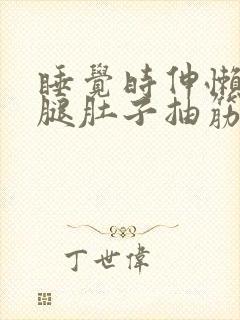 睡覺時伸懶
腿肚子抽筋
丁世偉